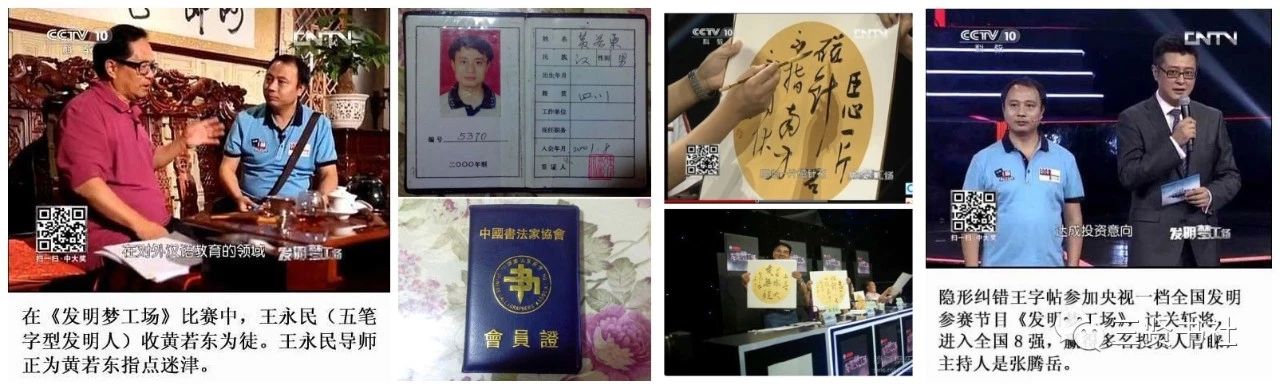 CCTV 10
科 教
扫一扫·中大奖
在对外汉语教育的领域
发明梦工场
在《发明梦工场》比赛中，王永民（五笔
字型发明人）收黄若东为徒。王永民导师
正为黄若东指点迷津。
姓名
民族 汉 性别 男
出生年月
籍贯 四川
工作单位
现任职务
入会年月 2001.8
签证人
编号 5370
二〇〇〇年颁
中國書法家協會
會員證
CCTV 10
科 教
臣心一片
磁针
CCTV 10
科 教
CNTV
扫一扫·中大奖
达成投资意向
发明梦工场
隐形纠错王字帖参加央视一档全国发明
参赛节目《发明梦工场》，过关斩将，
进入全国 8 强，赢得多名投资人青睐。
主持人是张腾岳。